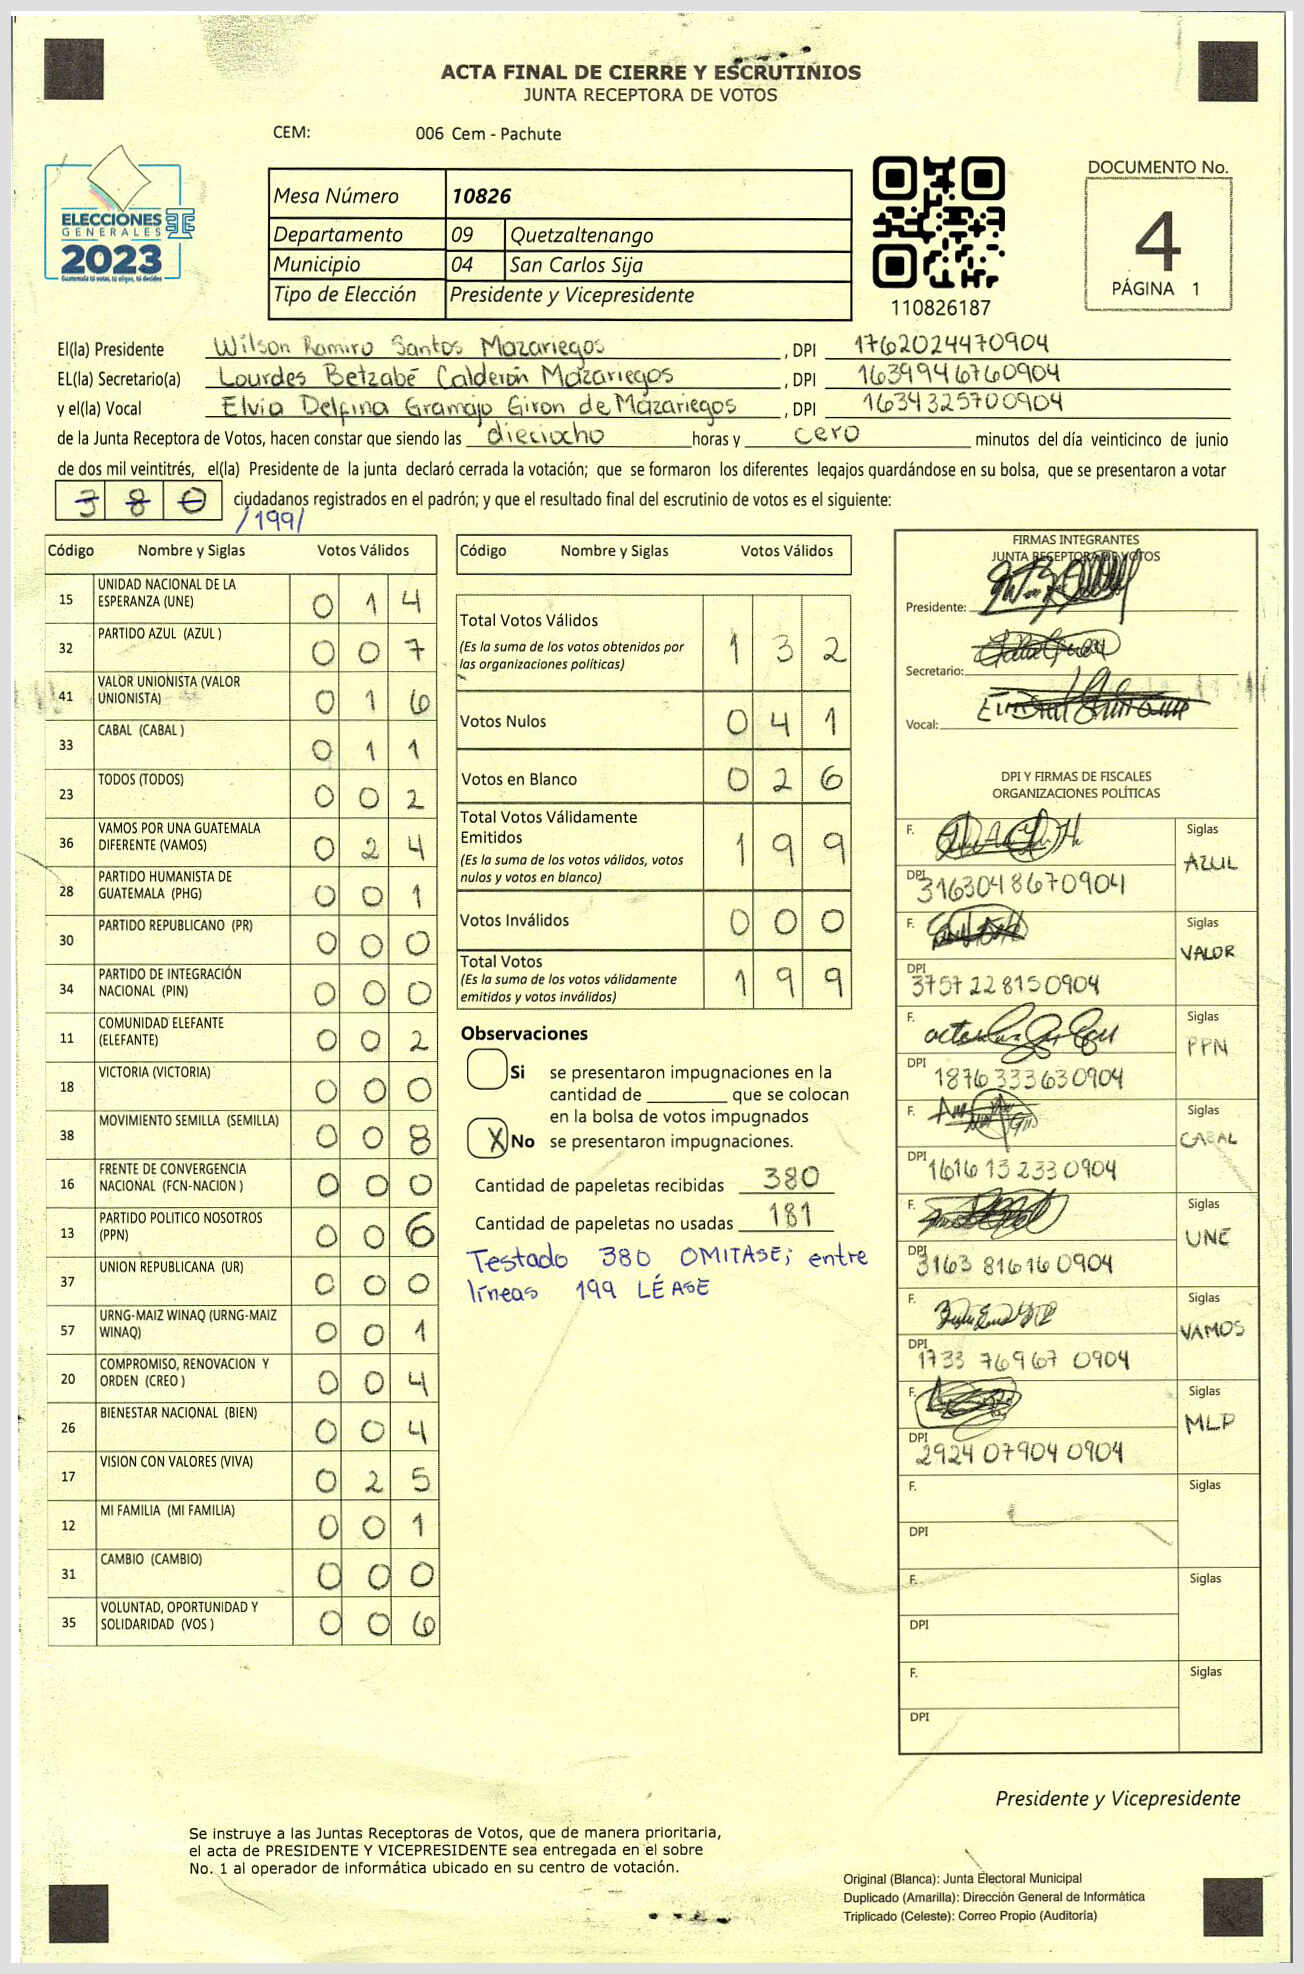 ACTA FINAL DE CIERRE Y ESCRUTINIOS
JUNTA RECEPTORA DE VOTOS
CEM: 006 Cem - Pachute
ELECCIONES
GENERALES
2023
Guatemala tú votas, tú eliges, tú decides
Mesa Número 10826
Departamento 09 Quetzaltenango
Municipio 04 San Carlos Sija
Tipo de Elección Presidente y Vicepresidente
110826187
DOCUMENTO No.
4
PÁGINA 1
El(la) Presidente Wilson Ramiro Santos Mazariegos , DPI 1762024470904
EL(la) Secretario(a) Lourdes Betzabé Calderón Mazariegos , DPI 1639946760904
y el(la) Vocal Elvia Delfina Gramajo Giron de Mazariegos , DPI 1634325700904
de la Junta Receptora de Votos, hacen constar que siendo las dieciocho horas y cero minutos del día veinticinco de junio
de dos mil veintitrés, el(la) Presidente de la junta declaró cerrada la votación; que se formaron los diferentes legajos guardándose en su bolsa, que se presentaron a votar
380 ciudadanos registrados en el padrón; y que el resultado final del escrutinio de votos es el siguiente:
/199/
Código Nombre y Siglas Votos Válidos
15 UNIDAD NACIONAL DE LA ESPERANZA (UNE) 0 1 4
32 PARTIDO AZUL (AZUL ) 0 0 7
41 VALOR UNIONISTA (VALOR UNIONISTA) 0 1 6
33 CABAL (CABAL ) 0 1 1
23 TODOS (TODOS) 0 0 2
36 VAMOS POR UNA GUATEMALA DIFERENTE (VAMOS) 0 2 4
28 PARTIDO HUMANISTA DE GUATEMALA (PHG) 0 0 1
30 PARTIDO REPUBLICANO (PR) 0 0 0
34 PARTIDO DE INTEGRACIÓN NACIONAL (PIN) 0 0 0
11 COMUNIDAD ELEFANTE (ELEFANTE) 0 0 2
18 VICTORIA (VICTORIA) 0 0 0
38 MOVIMIENTO SEMILLA (SEMILLA) 0 0 8
16 FRENTE DE CONVERGENCIA NACIONAL (FCN-NACION ) 0 0 0
13 PARTIDO POLITICO NOSOTROS (PPN) 0 0 6
37 UNION REPUBLICANA (UR) 0 0 0
57 URNG-MAIZ WINAQ (URNG-MAIZ WINAQ) 0 0 1
20 COMPROMISO, RENOVACION Y ORDEN (CREO ) 0 0 4
26 BIENESTAR NACIONAL (BIEN) 0 0 4
17 VISION CON VALORES (VIVA) 0 2 5
12 MI FAMILIA (MI FAMILIA) 0 0 1
31 CAMBIO (CAMBIO) 0 0 0
35 VOLUNTAD, OPORTUNIDAD Y SOLIDARIDAD (VOS ) 0 0 6
Código Nombre y Siglas Votos Válidos
Total Votos Válidos 1 3 2
(Es la suma de los votos obtenidos por
las organizaciones políticas)
Votos Nulos 0 4 1
Votos en Blanco 0 2 6
Total Votos Válidamente
Emitidos 1 9 9
(Es la suma de los votos válidos, votos
nulos y votos en blanco)
Votos Inválidos 0 0 0
Total Votos 1 9 9
(Es la suma de los votos válidamente
emitidos y votos inválidos)
Observaciones
Si se presentaron impugnaciones en la
cantidad de ________ que se colocan
en la bolsa de votos impugnados
X No se presentaron impugnaciones.
Cantidad de papeletas recibidas 380
Cantidad de papeletas no usadas 181
Testado 380 OMITASE; entre
líneas 199 LÉASE
FIRMAS INTEGRANTES
JUNTA RECEPTORA DE VOTOS
Presidente:
Secretario:
Vocal:
DPI Y FIRMAS DE FISCALES
ORGANIZACIONES POLÍTICAS
F. Siglas AZUL
DPI 3163048670904
F. Siglas VALOR
DPI 3757228150904
F. Siglas PPN
DPI 1876333630904
F. Siglas CABAL
DPI 1616132330904
F. Siglas UNE
DPI 3163816160904
F. Siglas VAMOS
DPI 1733769670904
F. Siglas MLP
DPI 2924079040904
F. Siglas
DPI
F. Siglas
DPI
F. Siglas
DPI
Presidente y Vicepresidente
Se instruye a las Juntas Receptoras de Votos, que de manera prioritaria,
el acta de PRESIDENTE Y VICEPRESIDENTE sea entregada en el sobre
No. 1 al operador de informática ubicado en su centro de votación.
Original (Blanca): Junta Electoral Municipal
Duplicado (Amarilla): Dirección General de Informática
Triplicado (Celeste): Correo Propio (Auditoría)